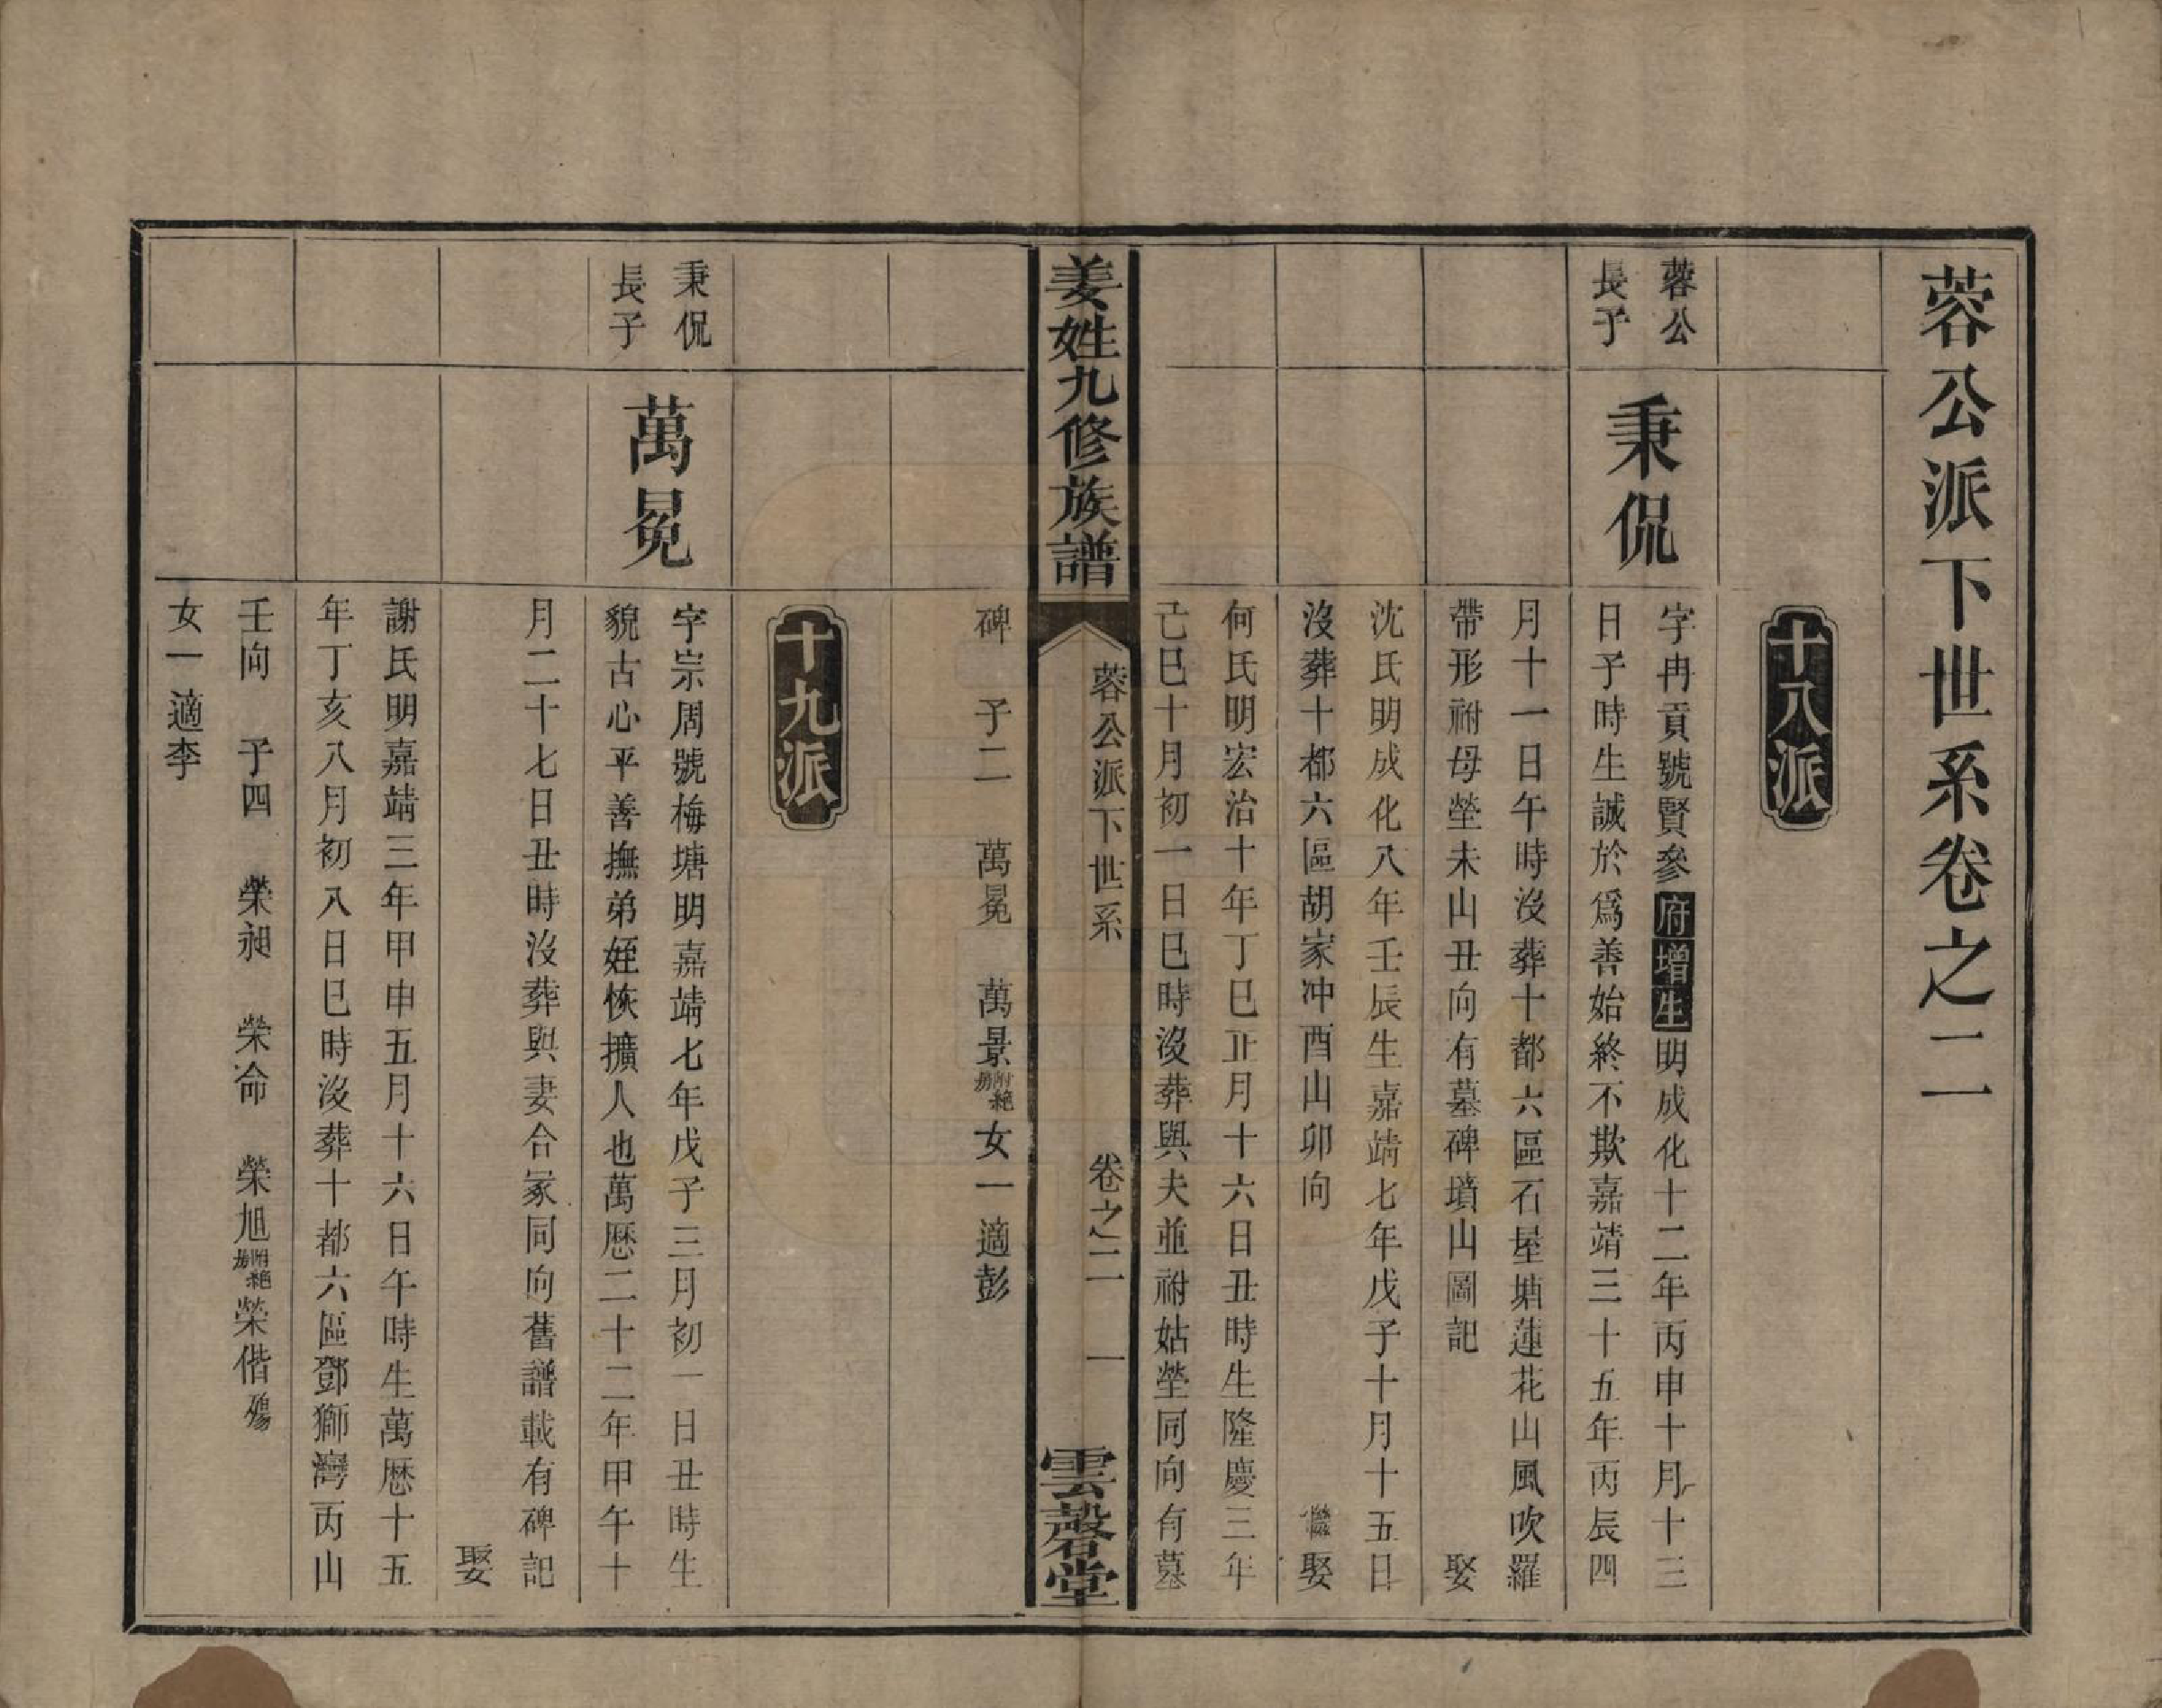 蓉公派下世系卷之二
十八派
蓉公
長子
秉侃
字冉貢號賢參府增生明成化十二年丙申十月十三
日子時生誠於爲善始終不欺嘉靖三十五年丙辰四
月十一日午時沒葬十都六區石屋塘蓮花山風吹羅
帶形祔母塋未山丑向有墓碑墳山圖記 娶
沈氏明成化八年壬辰生嘉靖七年戊子十月十五日
沒葬十都六區胡家冲酉山卯向 繼娶
何氏明宏治十年丁巳正月十六日丑時生隆慶三年
己巳十月初一日巳時沒葬與夫並祔姑塋同向有墓
姜姓九修族譜
蓉公派下世系 卷之二 一
雲磬堂
碑 子二 萬冕 萬景附絕房女一適彭
十九派
秉侃
長子
萬冕
字宗周號梅塘明嘉靖七年戊子三月初一日丑時生
貌古心平善撫弟姪恢擴人也萬歷二十二年甲午十
月二十七日丑時沒葬與妻合冢同向舊譜載有碑記
娶
謝氏明嘉靖三年甲申五月十六日午時生萬歷十五
年丁亥八月初八日巳時沒葬十都六區鄧獅灣丙山
壬向 子四 榮昶 榮命 榮旭附絕房榮偕殤
女一適李